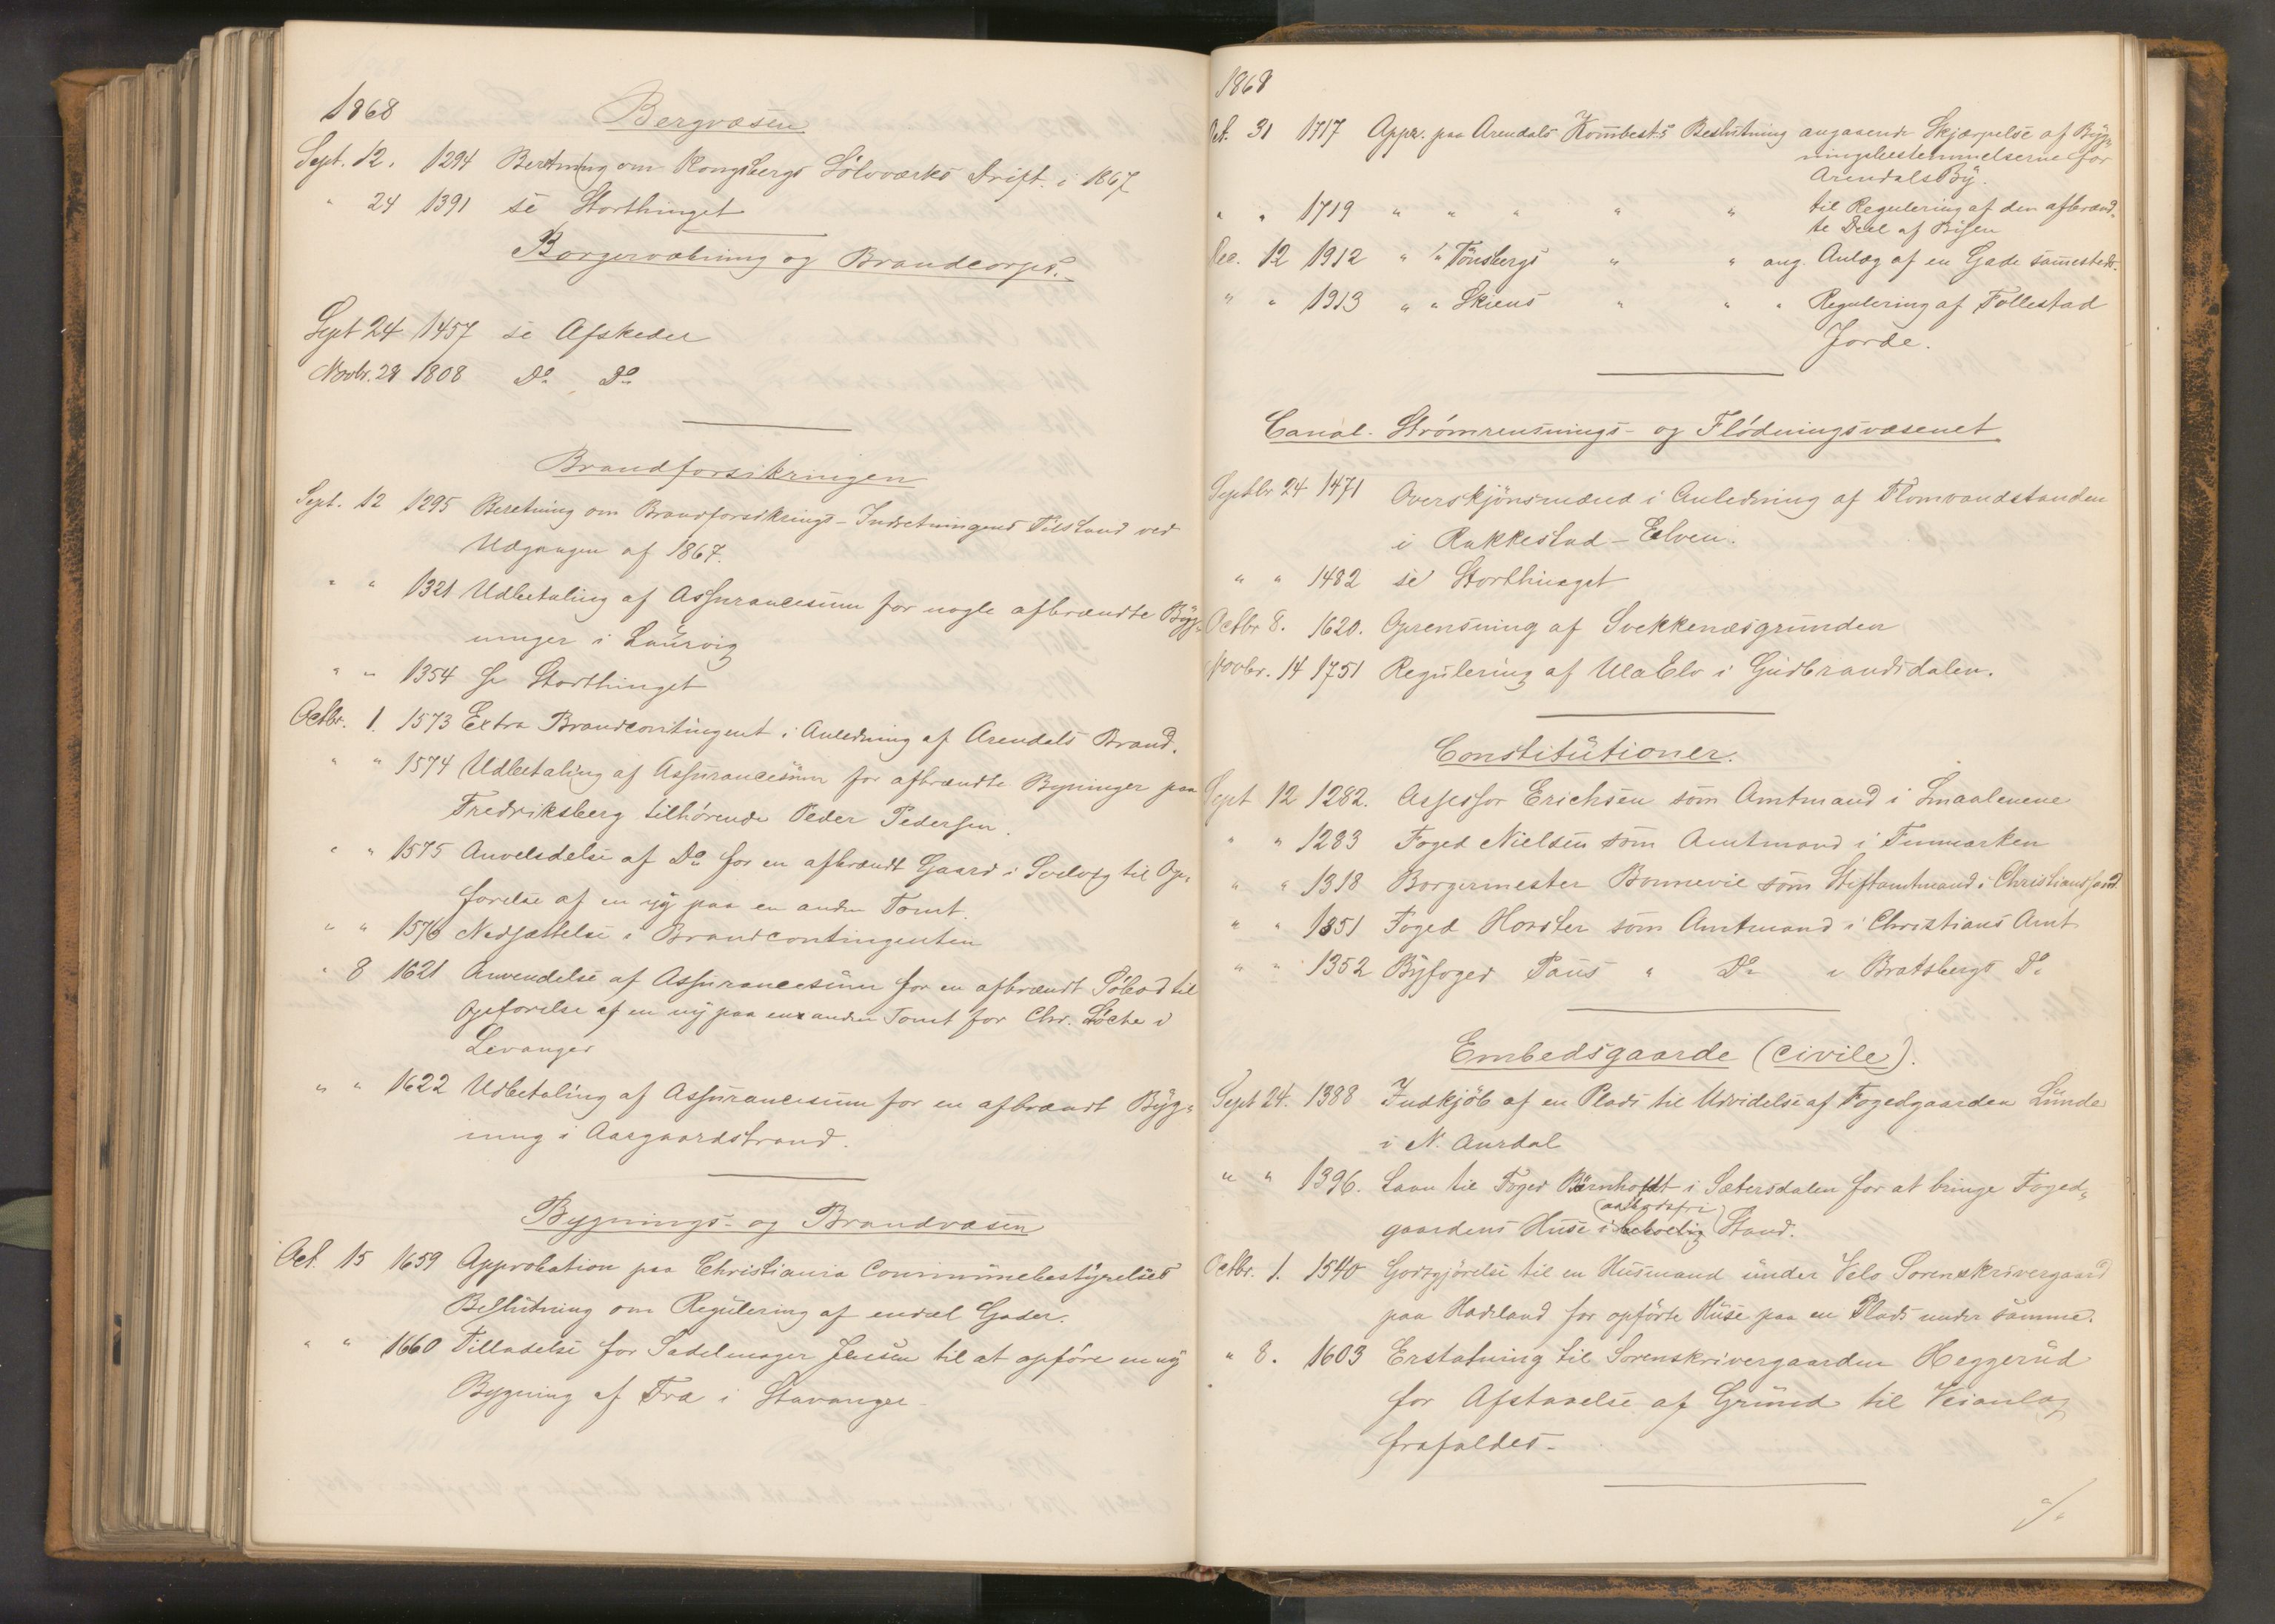 1868
Bergvæsen
Sept. 12. 1294 Beretning om Kongsbergs Sölvværks Drift i 1867
" 24 1391 se Storthinget
Borgervæbning og Brandcorps.
Sept 24 1457 se Afskeder
Novbr. 28 1808 Do Do
Brandforsikringen
Sept. 12 1295 Beretning om Brandforsikrings-Indretningens Tilstand ved
Udgangen af 1867.
" " 1321 Udbetaling af Assurancesum for nogle afbrændte Byg-
ninger i Laurvig
" " 1354 se Storthinget
Octbr. 1. 1573 Extra Brandcontingent i Anledning af Arendals Brand.
" " 1574 Udbetaling af Assurancesum for afbrændte Bygninger paa
Fredriksberg tilhörende Peder Pedersen.
" " 1575 Anvelsdelse af Do for en afbrændt Gaard i Svelvig til Op-
förelse af en ny paa en anden Tomt.
" " 1576 Nedsættelse i Brandcontingenten
" 8 1621 Anvendelse af Assurancesum for en afbrændt Söbod til
Opförelse af en ny paa en anden Tomt for Chr. Löche i
Levanger
" " 1622 Udbetaling af Assurancesum for en afbrændt Byg-
ning i Aasgaardstrand.
Bygnings- og Brandvæsen
Oct. 15 1659 Approbation paa Christiania Communebestyrelses
Beslutning om Regulering af endel Gader.
" " 1660 Tilladelse for Sadelmager Jensen til at opföre en ny
Bygning af Træ i Stavanger
1868
Oct. 31 1717 Appr. paa Arendals Kombest.s Beslutning angaaende Skjærpelse af Byg-
ningsbestemmelserne for
Arendals By.
" " 1719 " " " " " til Regulering af den afbrænd-
te Deel af Byen
Dec. 12 1912 " " Tönsbergs " " ang. Anlæg af en Gade samesteds.
" " 1913 " " Skiens " " " Regulering af Follestad
Jorde.
Canal- Strömrensnings- og Flödningsvæsenet
Septbr 24 1471 Overskjönsmænd i Anledning af Flomvandstanden
i Rakkestad-Elven.
" " 1482 se Storthinget
Octbr 8. 1620. Oprensning af Svekkenæsgrunden
Novbr. 14 1751 Regulering af Ula Elv i Gudbrandsdalen.
Constitutioner.
Sept 12 1282. Assessor Erichsen som Amtmand i Smaalenene
" " 1283 Foged Nielsen som Amtmand i Finmarken
" " 1318 Borgermester Bonnevie som Stiftamtmand i Christianssand
" " 1351 Foged Horster som Amtmand i Christians Amt
" " 1352 Byfoged Paus " Do i Bratsbergs Do
Embedsgaarde (civile).
Sept 24. 1388 Indkjöb af en Plads til Udvidelse af Fogedgaarden Lunde
i N. Aurdal
" " 1396. Laan til Foged Bernhoft i Sætersdalen for at bringe Foged-
(aabodsfri
gaardens Huse i beboelig) Stand.
Octbr. 1. 1540 Godtgjörelse til en Husmand under Velo Sorenskrivergaard
paa Hadeland for opförte Huse paa en Plads under samme.
" 8. 1603 Erstatning til Sorenskrivergaarden Heggerud
for Afstaaelse af Grund til Veianlæg
frafaldes.